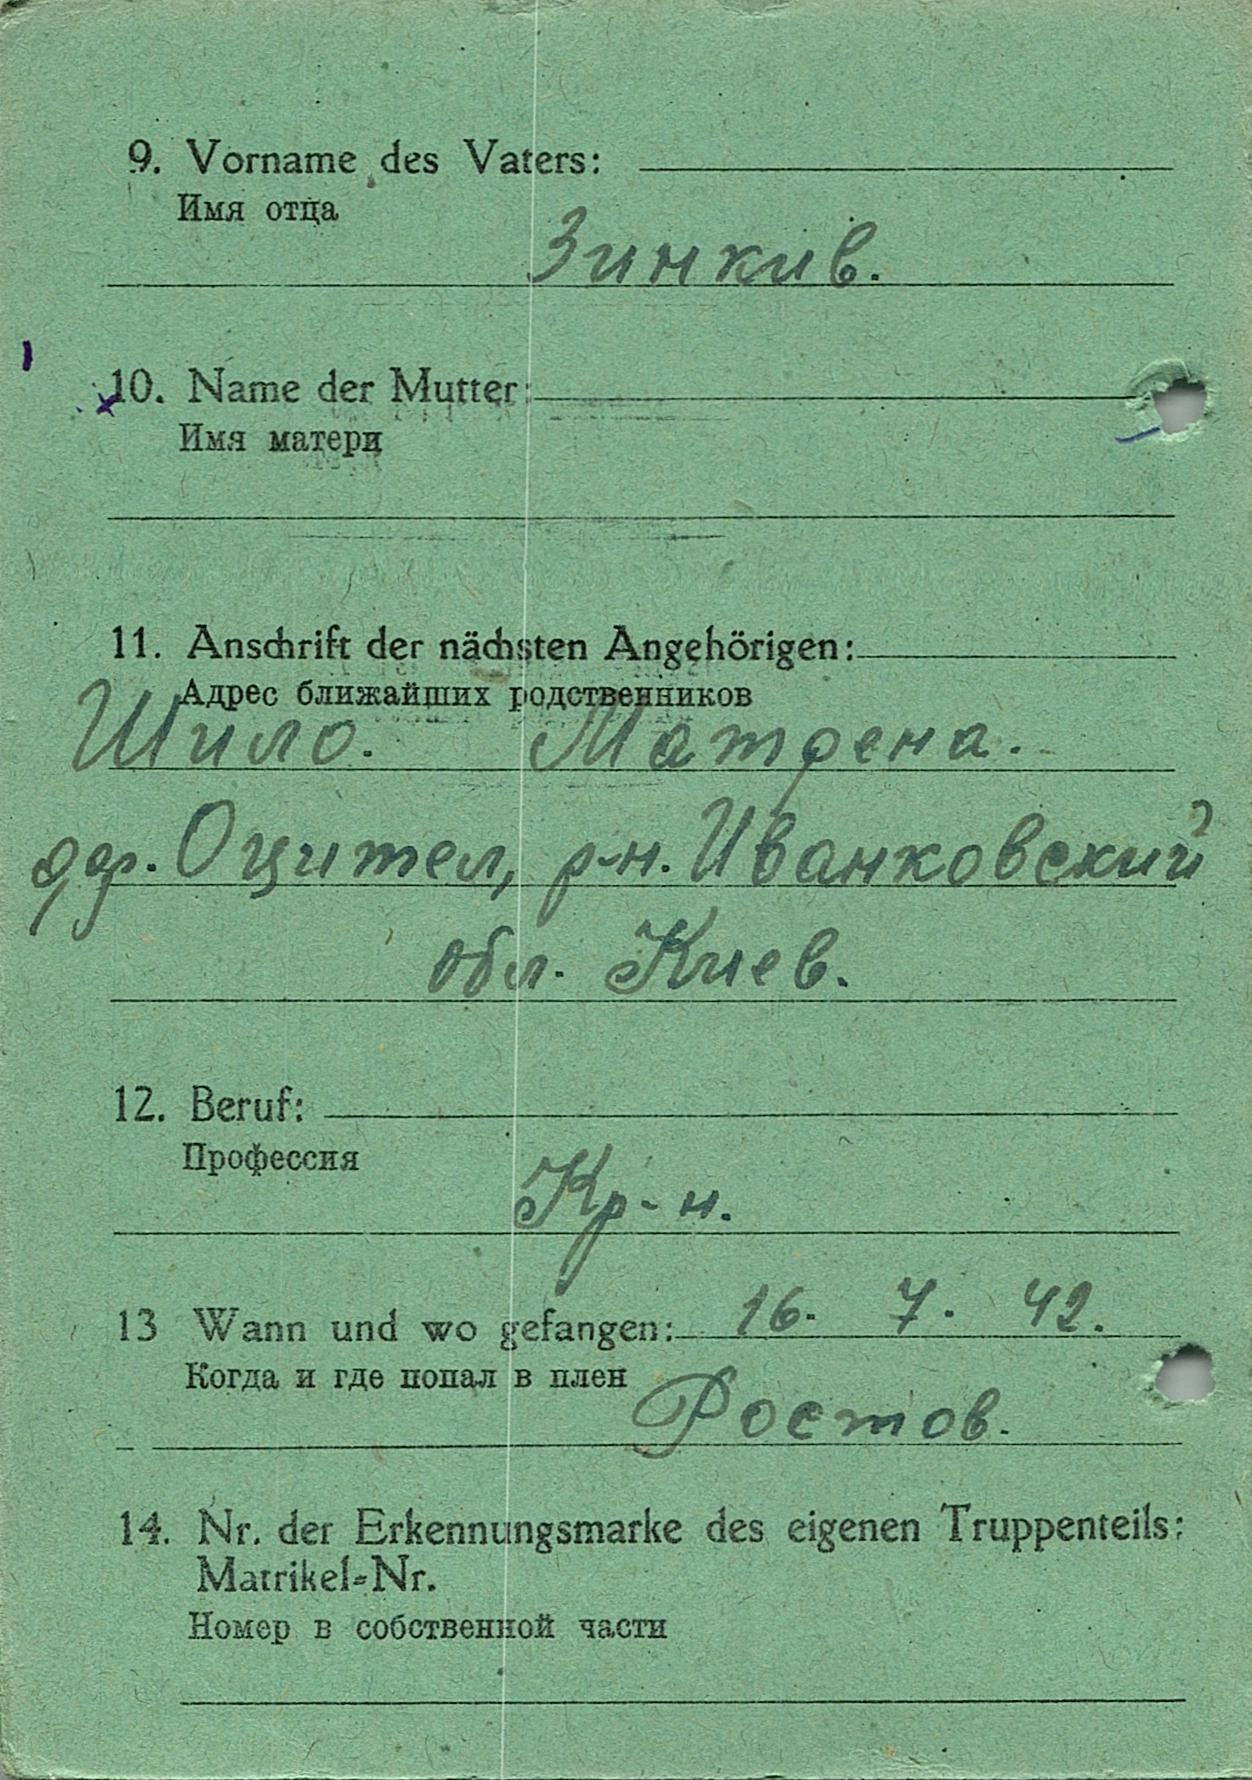 9. Vorname des Vaters:
Имя отца
Зинкив.
10. Name der Mutter:
Имя матери
11. Anschrift der nächsten Angehörigen:
Адрес ближайших родственников
Шило. Матрена.
др. Оцител, р-н. Иванковский
обл. Киев.
12. Beruf:
Профессия
Кр-н.
13 Wann und wo gefangen: 16. 7. 42.
Когда и где попал в плен
Ростов.
14. Nr. der Erkennungsmarke des eigenen Truppenteils:
Matrikel-Nr.
Номер в собственной части